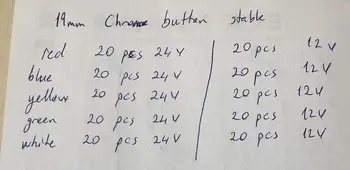 19mm Chrome button stable
red 20 pcs 24V 20 pcs 12V
blue 20 pcs 24V 20 pcs 12V
yellow 20 pcs 24V 20 pcs 12V
green 20 pcs 24V 20 pcs 12V
white 20 pcs 24V 20 pcs 12V